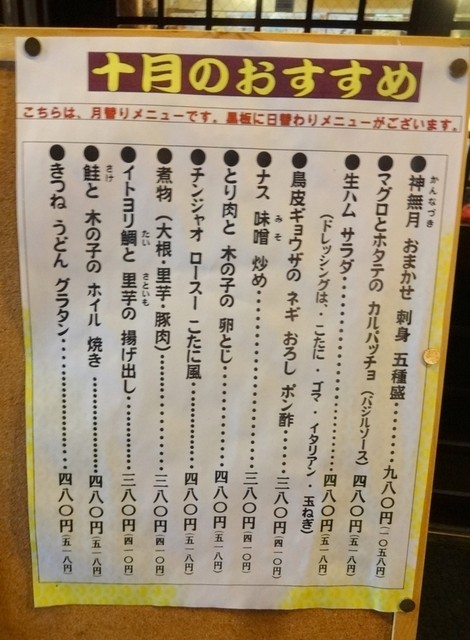 十月のおすすめ
こちらは、月替りメニューです。黒板に日替わりメニューがございます。
●神無月 おまかせ 刺身 五種盛………九八〇円(一〇五八円)
かんなづき
●マグロとホタテの カルパッチョ (バジルソース) 四八〇円(五一八円)
●生ハム サラダ………四八〇円(五一八円)
(ドレッシングは、こたに・ゴマ・イタリアン・玉ねぎ)
●鳥皮ギョウザの ネギ おろし ポン酢………三八〇円(四一〇円)
●ナス 味噌 炒め………三八〇円(四一〇円)
みそ
●とり肉と 木の子の 卵とじ………四八〇円(五一八円)
●チンジャオ ロースー こたに風………四八〇円(五一八円)
●煮物 (大根・里芋・豚肉)………三八〇円(四一〇円)
●イトヨリ鯛と 里芋の 揚げ出し………三八〇円(四一〇円)
たい さといも
●鮭と 木の子の ホイル 焼き………四八〇円(五一八円)
さけ
●きつね うどん グラタン………四八〇円(五一八円)